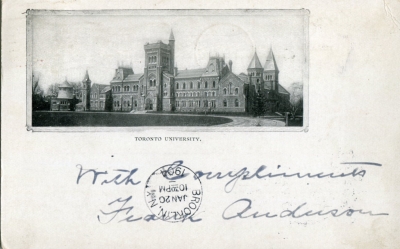 TORONTO UNIVERSITY.
With Compliments
Frank Anderson
BROOKLYN, N.Y.
JAN 20
10 30 PM
1904